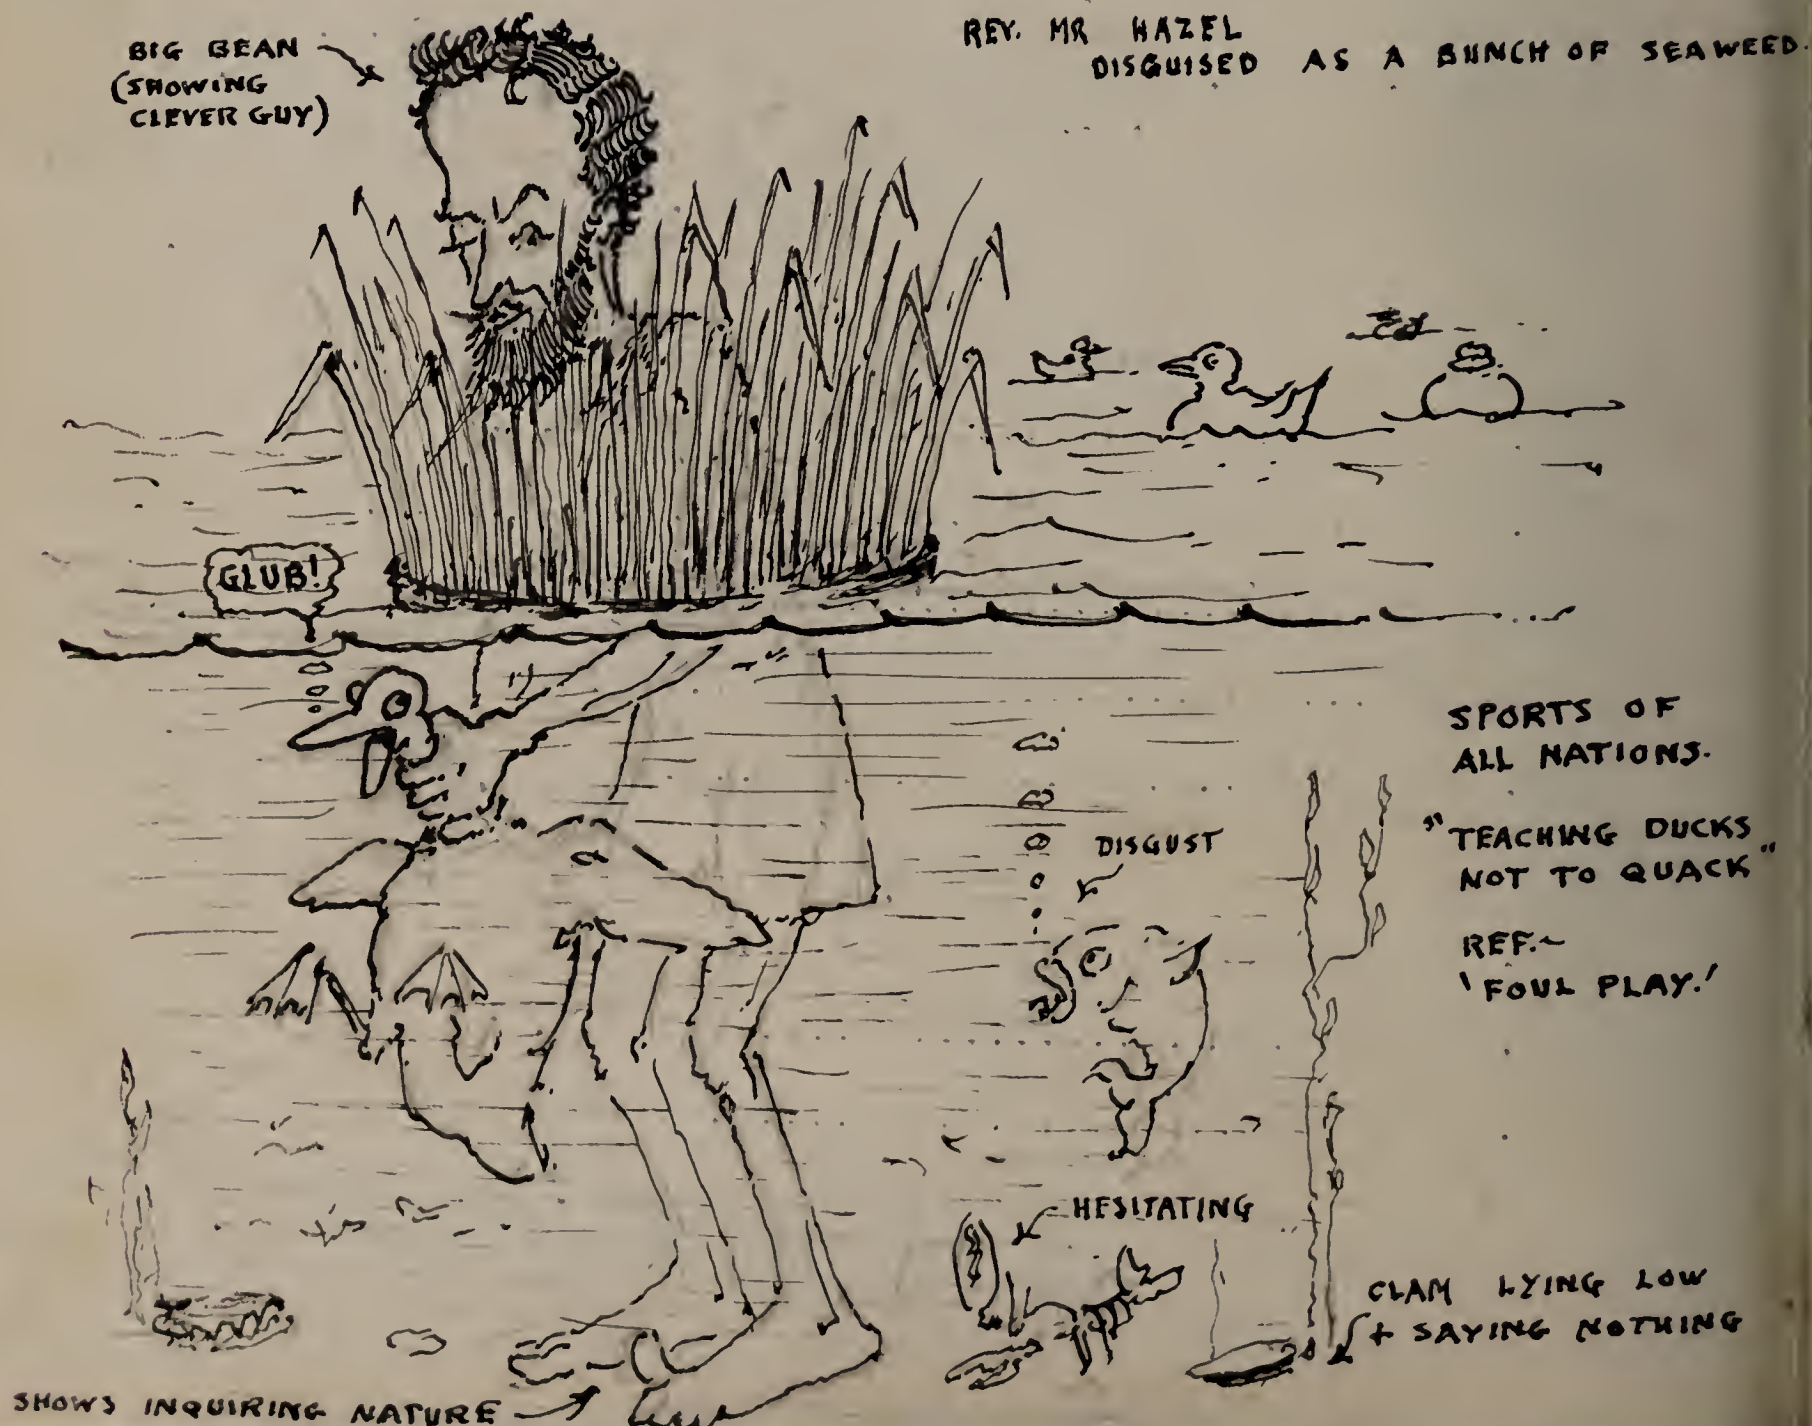 BIG BEAN
(SHOWING
CLEVER GUY)
REV. MR HAZEL
DISGUISED AS A BUNCH OF SEAWEED.
GLUB!
SPORTS OF
ALL NATIONS.
"TEACHING DUCKS
NOT TO QUACK"
REF.~
'FOUL PLAY.'
DISGUST
HESITATING
CLAM LYING LOW
+ SAYING NOTHING
SHOWS INQUIRING NATURE